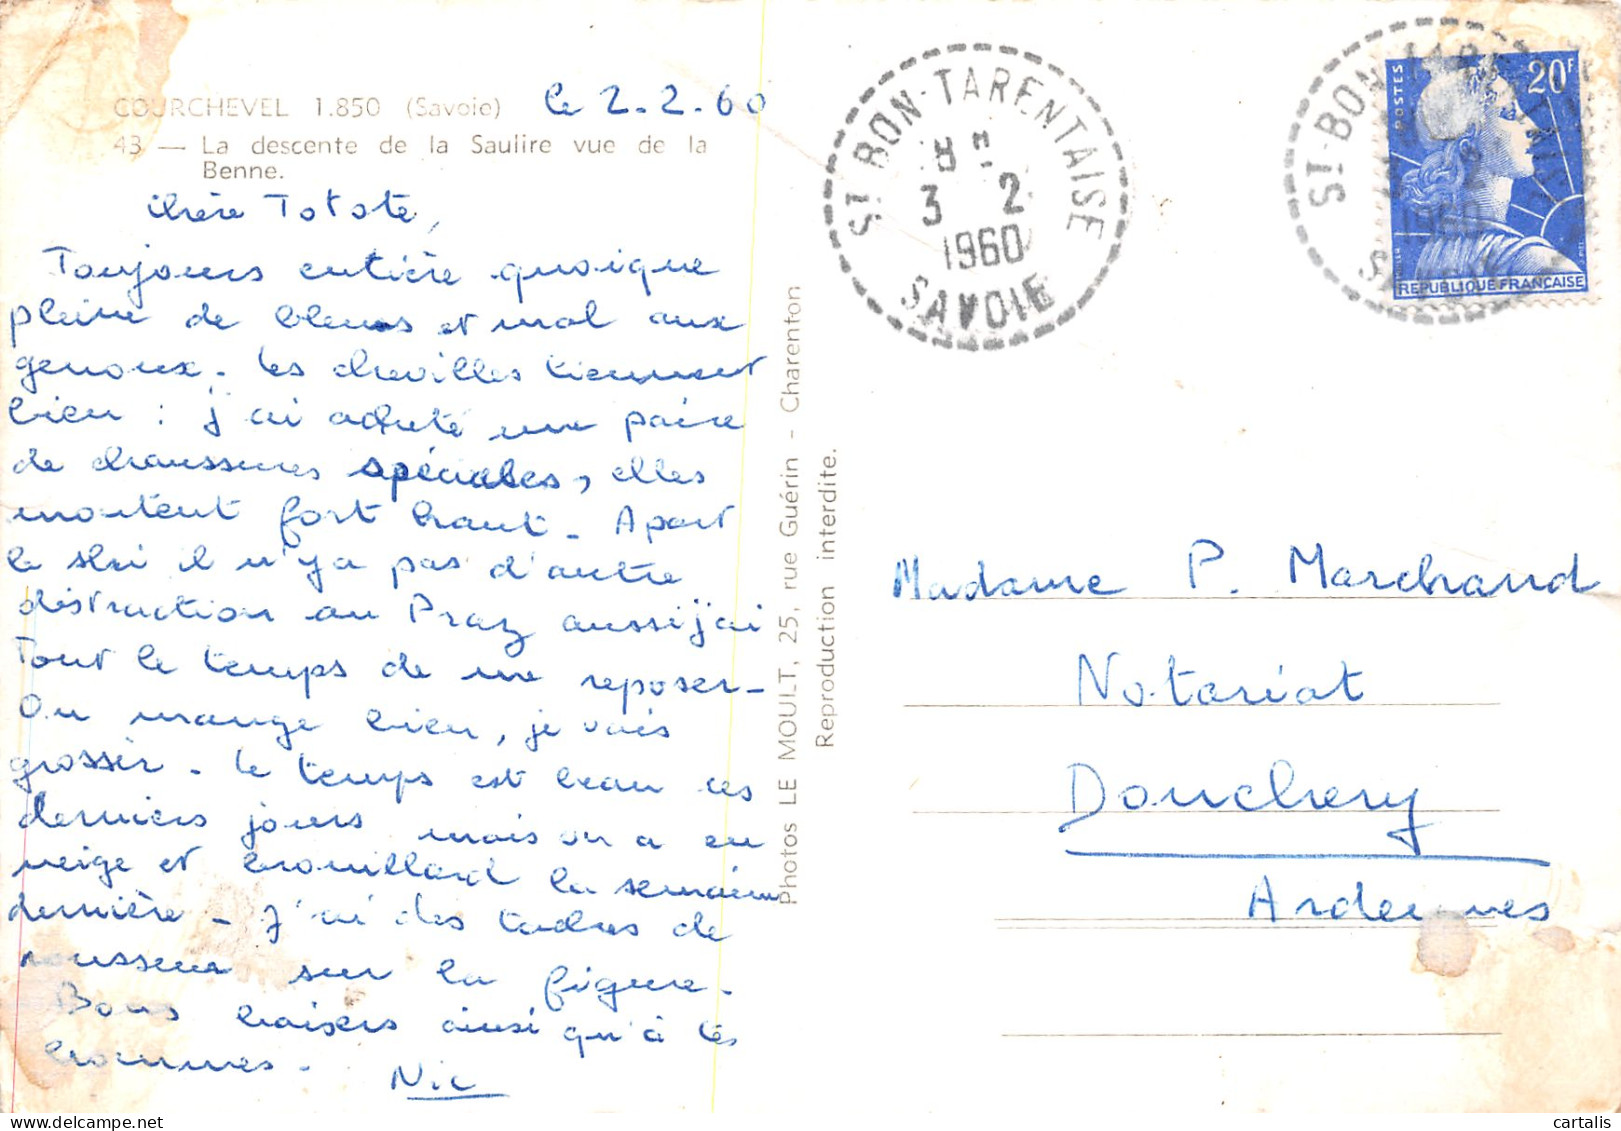 COURCHEVEL 1.850 (Savoie)
43 — La descente de la Saulire vue de la
Benne.
le 2.2.60
Chère Totote,
Toujours entière quoique
pleine de bleus et mal aux
genoux. Les chevilles tiennent
bien : j'ai acheté une paire
de chaussures spéciales, elles
montent fort haut. Apart
le ski il n'y a pas d'autre
distraction au Praz aussi j'ai
tout le temps de me reposer.
On mange bien, je vais
grossir. Le temps est beau ces
derniers jours mais on a eu
neige et brouillard la semaine
dernière. J'ai des taches de
rousseur sur la figure.
Bons baisers ainsi qu'à tes
hommes.
Nic
Photos LE MOULT, 25, rue Guérin - Charenton
Reproduction interdite.
ST BON-TARENTAISE
8H
3 2
1960
SAVOIE
ST BON-TARENTAISE
2
1960
SAVOIE
POSTES
20F
REPUBLIQUE FRANÇAISE
Madame P. Marchand
Notariat
Donchery
Ardennes
cartalis